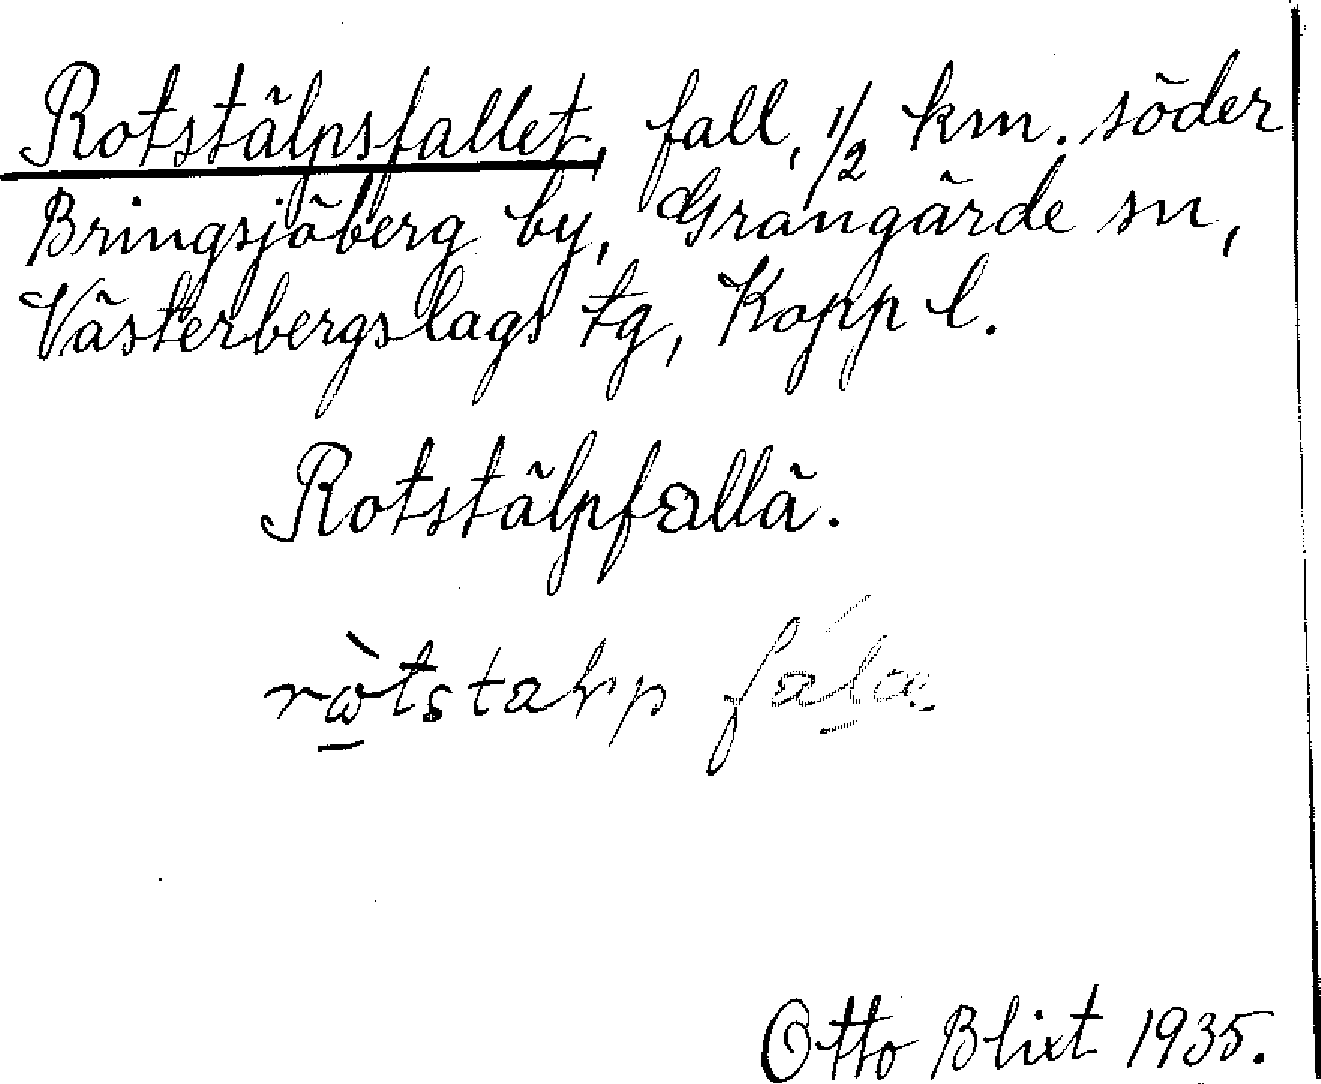 Rotstälpsfallet, fall, 1/2 km. söder
Bringsjöberg by, Grangärde sn,
Västerbergslags tg, Kopp l.
Rotstälpfallä.
Otto Blixt 1935.